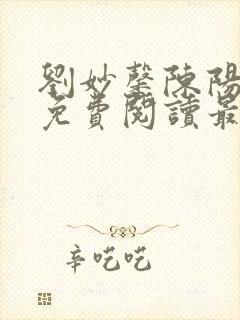 劉妙馨陳陽
免費閱讀最
辛吃吃